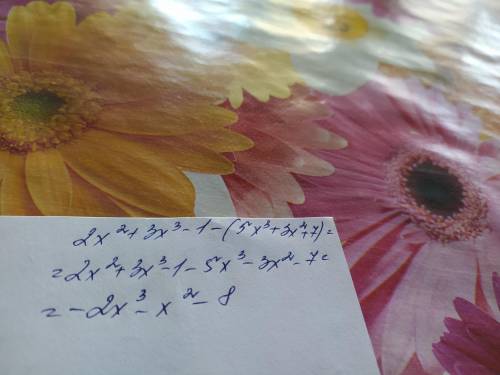 2x²+3x³-1-(5x³+3x²+7)=
=2x²+3x³-1-5x³-3x²-7=
=-2x³-x²-8